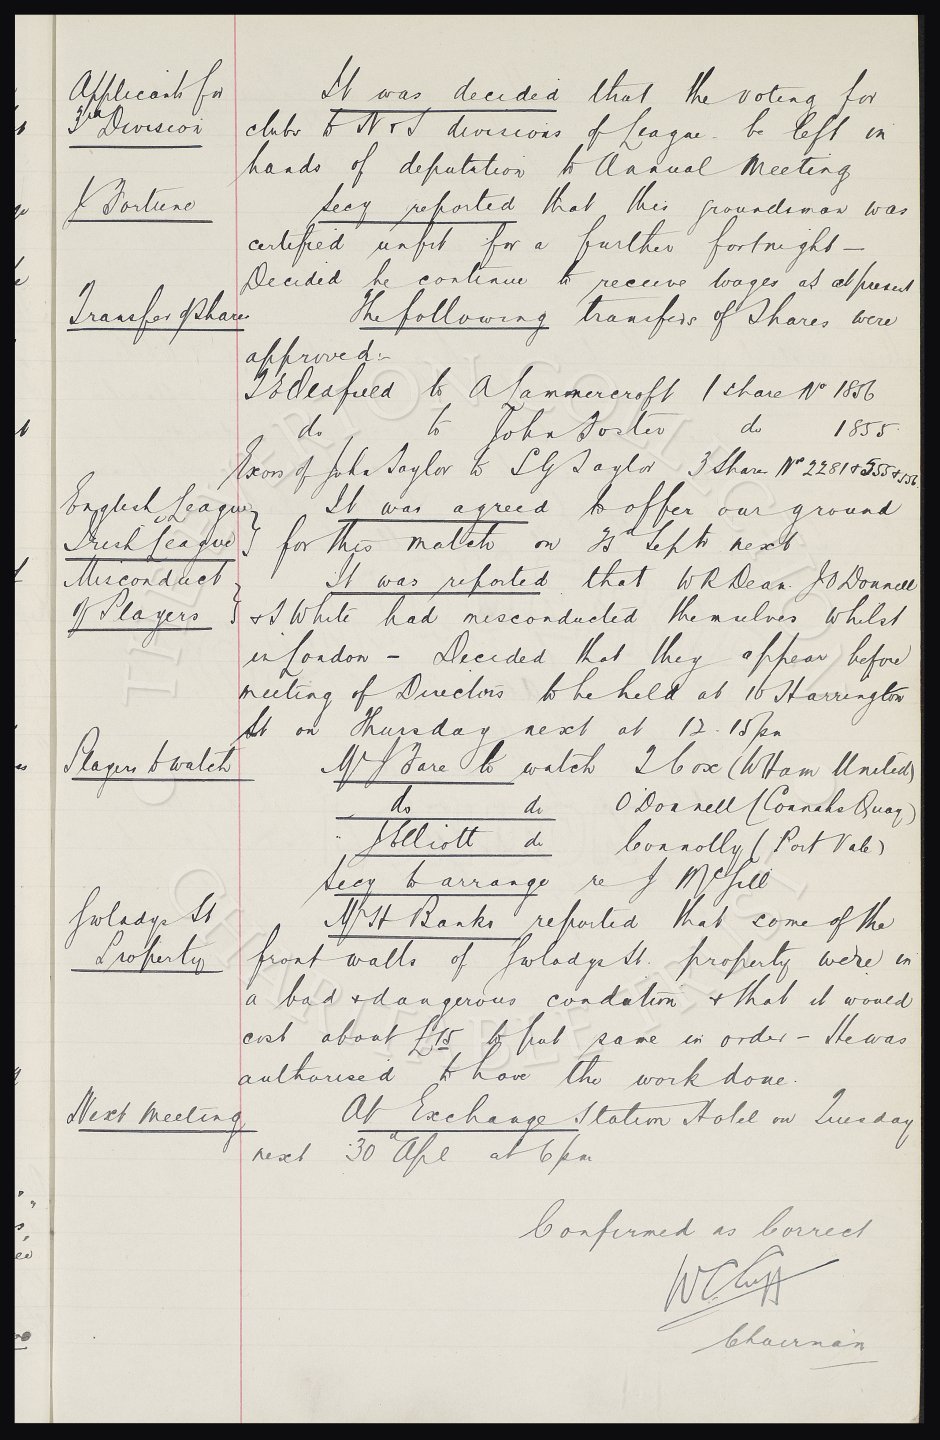 Applicants for
3rd Division
It was decided that the voting for
clubs to N & S divisions of League be left in
hands of deputation to Annual Meeting
J Fortune
Secy reported that this groundsman was
certified unfit for a further fortnight —
Decided he continue to receive wages as at present
Transfer of Shares
The following transfers of Shares were
approved:-
to A Lammercroft 1 share No 1856
do to John Foster do 1855
Exors of John Taylor to S G Taylor 3 Shares Nos 2281 & 555 & 556
English League v
Irish League
It was agreed to offer our ground
for this match on Sept next
Misconduct
of Players
It was reported that W R Dean J O'Donnell
& T White had misconducted themselves whilst
in London — Decided that they appear before
meeting of Directors to be held at 10 Harrington
St on Thursday next at 12.15 pm
Players to watch
Mr J Fare to watch Cox (W Ham United)
do do O'Donnell (Connahs Quay)
J Elliott do Connolly (Port Vale)
Secy to arrange re J McGill
Gwladys St
Property
Mr H Banks reported that some of the
front walls of Gwladys St. property were in
a bad & dangerous condition & that it would
cost about £15 to put same in order — He was
authorised to have the work done.
Next Meeting
At Exchange Station Hotel on Tuesday
next 30th Apl at 6 pm
Confirmed as Correct
W C Cuff
Chairman
THE EVERTON COLLECTION
CHARITABLE TRUST